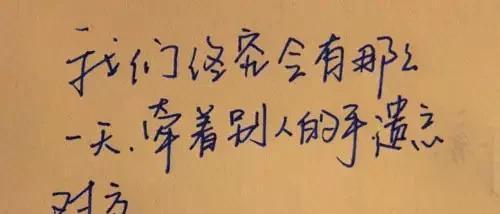 我们终究会有那么
一天.牵着别人的手遗忘
对方